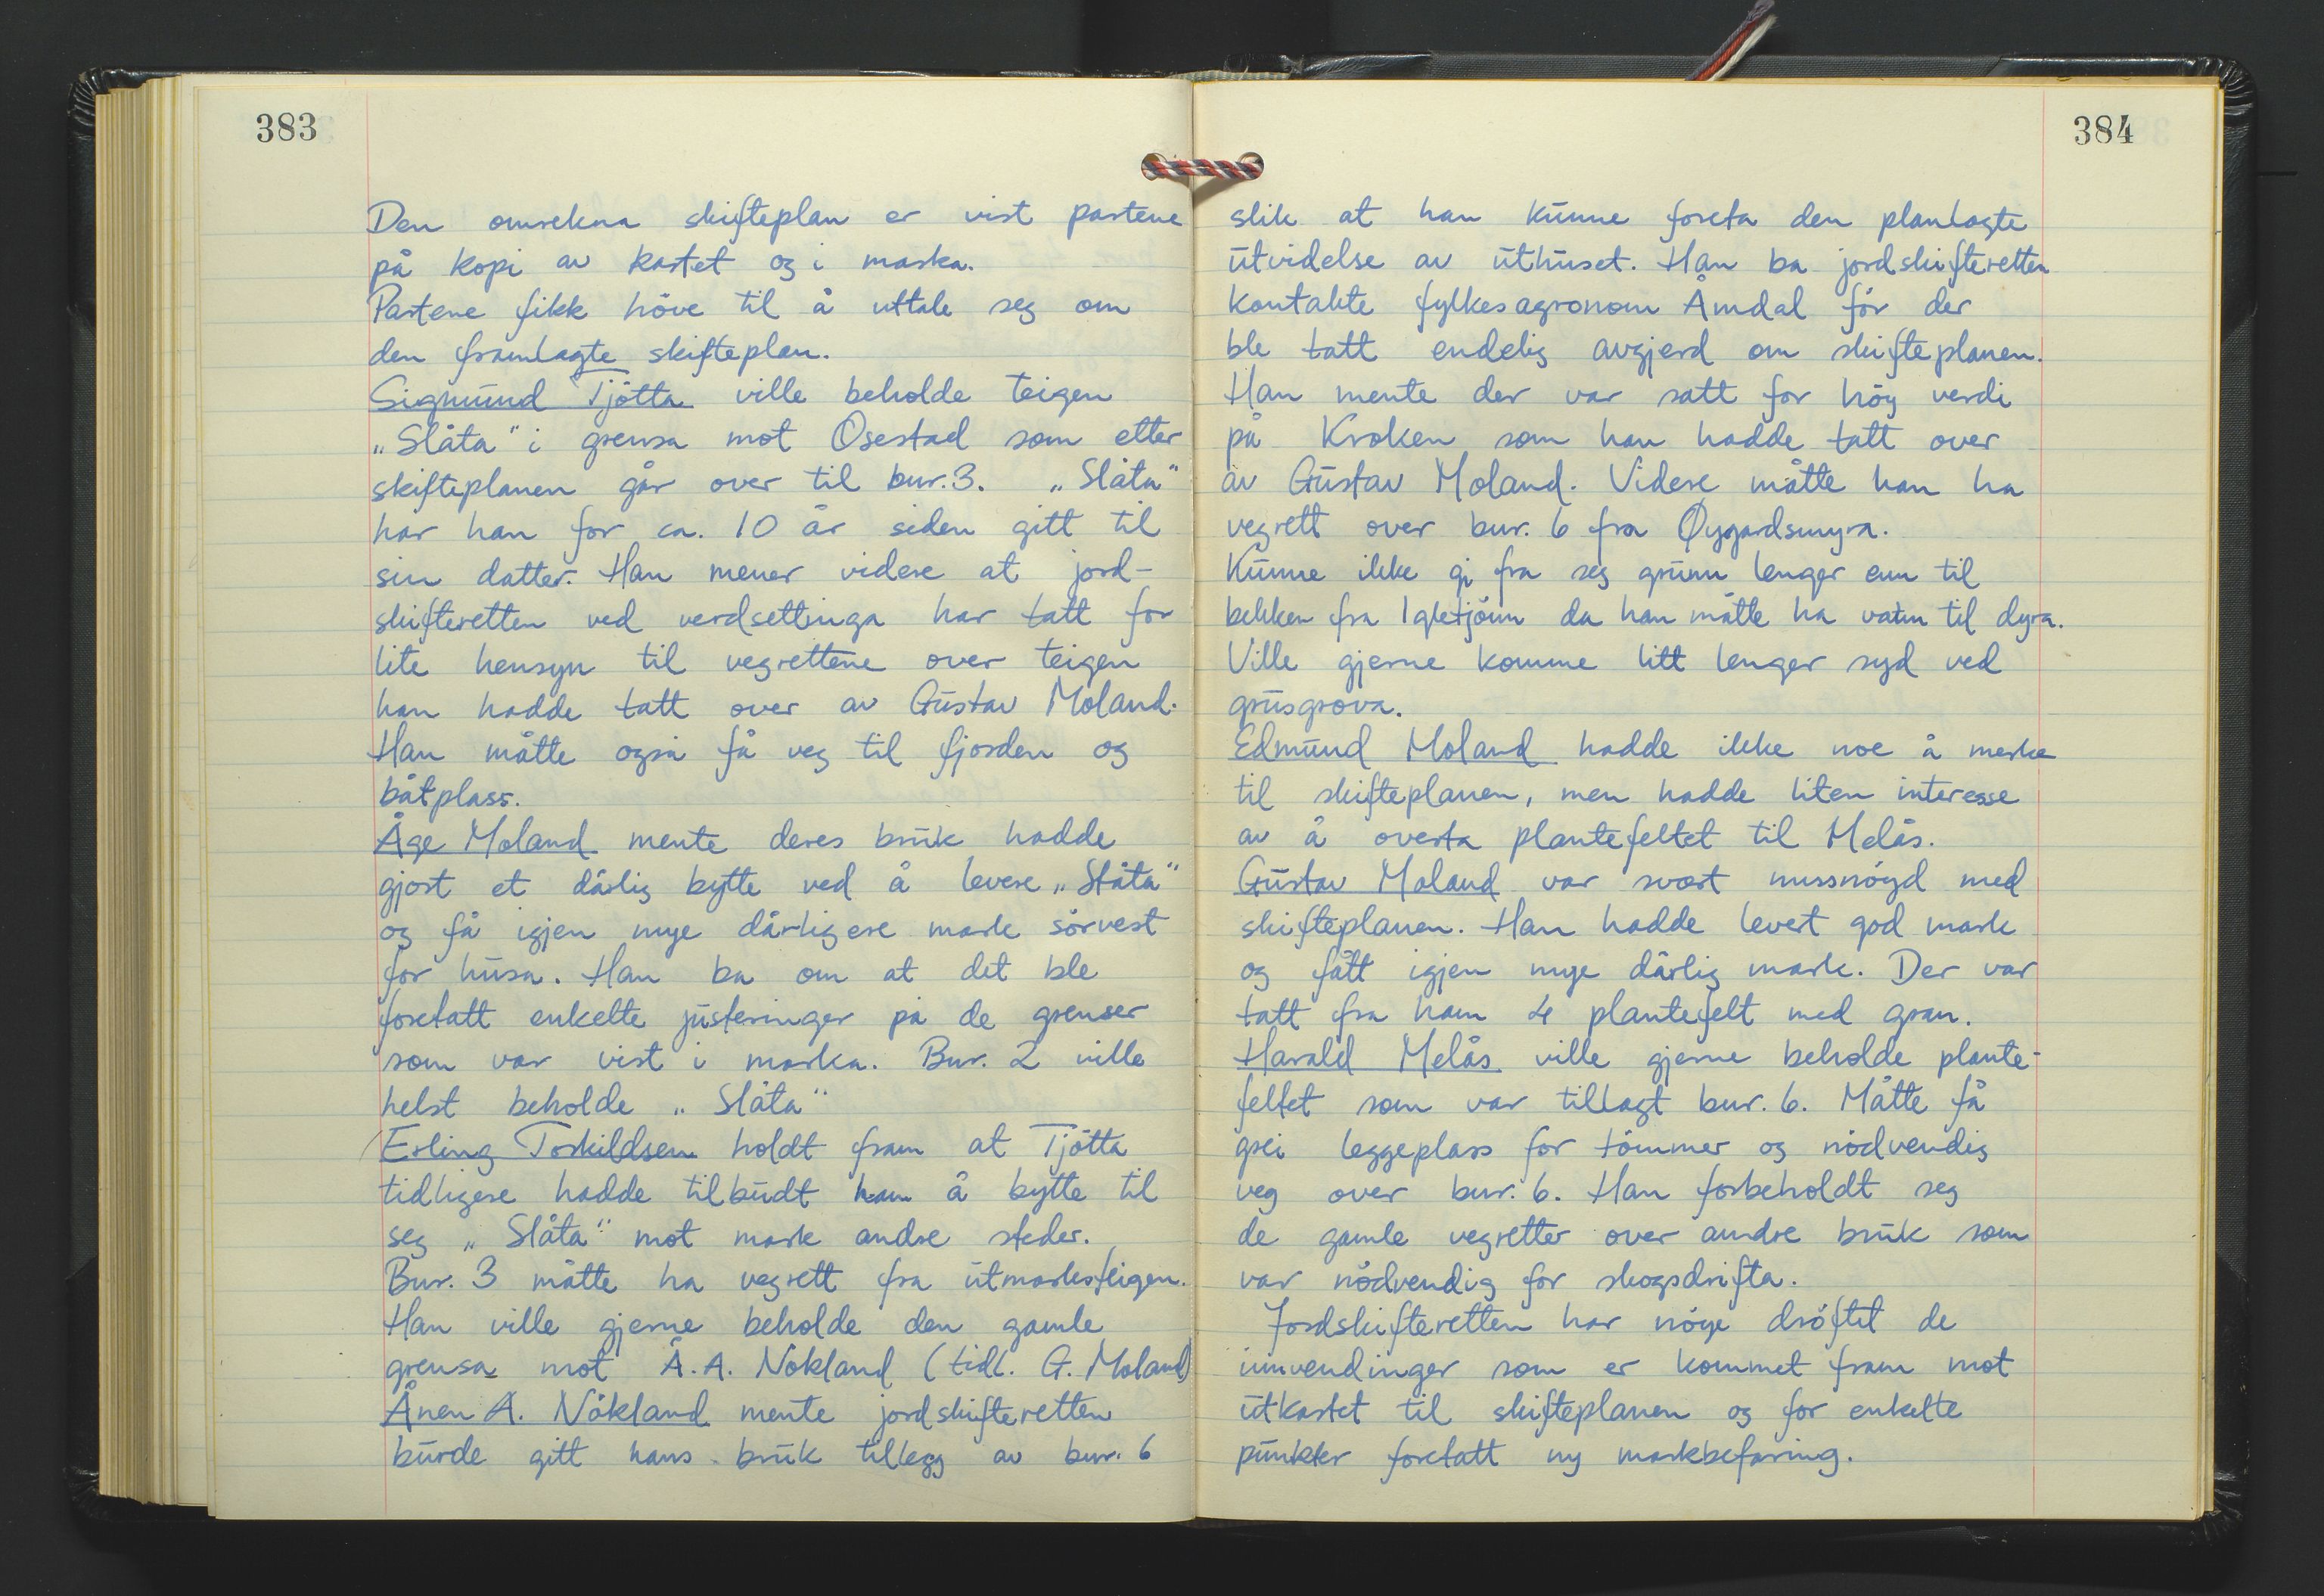 383
Den omrekna skifteplan er vist partene
på kopi av kartet og i marka.
Partene fikk höve til å uttale seg om
den framlagte skifteplan.
Sigmund Tjötta ville beholde teigen
„Slåta" i grensa mot Osestad som etter
skifteplanen går over til bur. 3. „Slåta"
har han for ca. 10 år siden gitt til
sin datter. Han mener videre at jord-
skifteretten ved verdsettinga har tatt for
lite hensyn til vegrettene over teigen
han hadde tatt over av Gustav Moland.
Han måtte også få veg til fjorden og
båtplass.
Åge Moland mente deres bruk hadde
gjort et dårlig bytte ved å levere „Slåta"
og få igjen mye dårligere mark sörvest
for husa. Han ba om at det ble
foretatt enkelte justeringer på de grenser
som var vist i marka. Bur. 2 ville
helst beholde „Slåta"
Erling Torkildsen holdt fram at Tjötta
tidligere hadde tilbudt ham å bytte til
seg „Slåta" mot mark andre steder.
Bur. 3 måtte ha vegrett fra utmarksteigen.
Han ville gjerne beholde den gamle
grensa mot Å.A. Nökland (tidl. G. Moland)
Ånen A. Nökland mente jordskifteretten
burde gitt hans bruk tillegg av bur. 6
384
slik at han kunne foreta den planlagte
utvidelse av uthuset. Han ba jordskifteretten
kontakte fylkesagronom Åmdal för der
ble tatt endelig avgjerd om skifteplanen.
Han mente der var satt for höy verdi
på Kroken som han hadde tatt over
av Gustav Moland. Videre måtte han ha
vegrett over bur. 6 fra Øygardsmyra.
Kunne ikke gi fra seg grunn lenger enn til
bekken fra Igletjönn da han måtte ha vatn til dyra.
Ville gjerne komme litt lenger syd ved
grusgrova.
Edmund Moland hadde ikke noe å merke
til skifteplanen, men hadde liten interesse
av å overta plantefeltet til Melås.
Gustav Moland var svært missnöyd med
skifteplanen. Han hadde levert god mark
og fått igjen mye dårlig mark. Der var
tatt fra ham 4 plantefelt med gran.
Harald Melås ville gjerne beholde plante-
feltet som var tillagt bur. 6. Måtte få
grei leggeplass for tömmer og nödvendig
veg over bur. 6. Han forbeholdt seg
de gamle vegretter over andre bruk som
var nödvendig for skogsdrifta.
Jordskifteretten har nöye dröftet de
innvendinger som er kommet fram mot
utkastet til skifteplanen og for enkelte
punkter foretatt ny markbefaring.